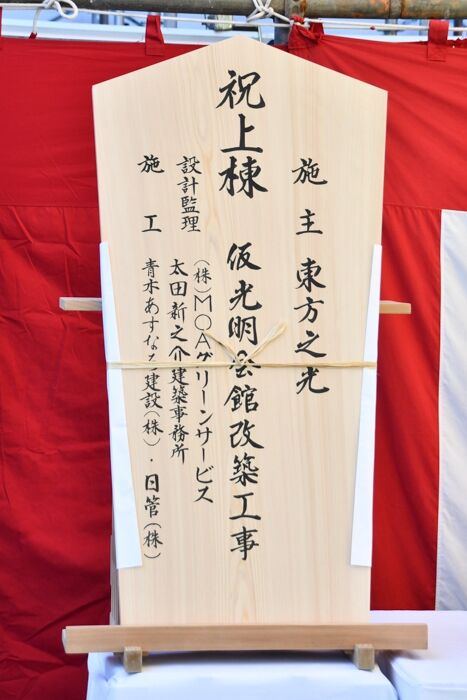 施主 東方之光
祝上棟 仮光明会館改築工事
(株)MOAグリーンサービス
設計監理 太田新之介建築事務所
施工 青木あすなろ建設(株)・日管(株)